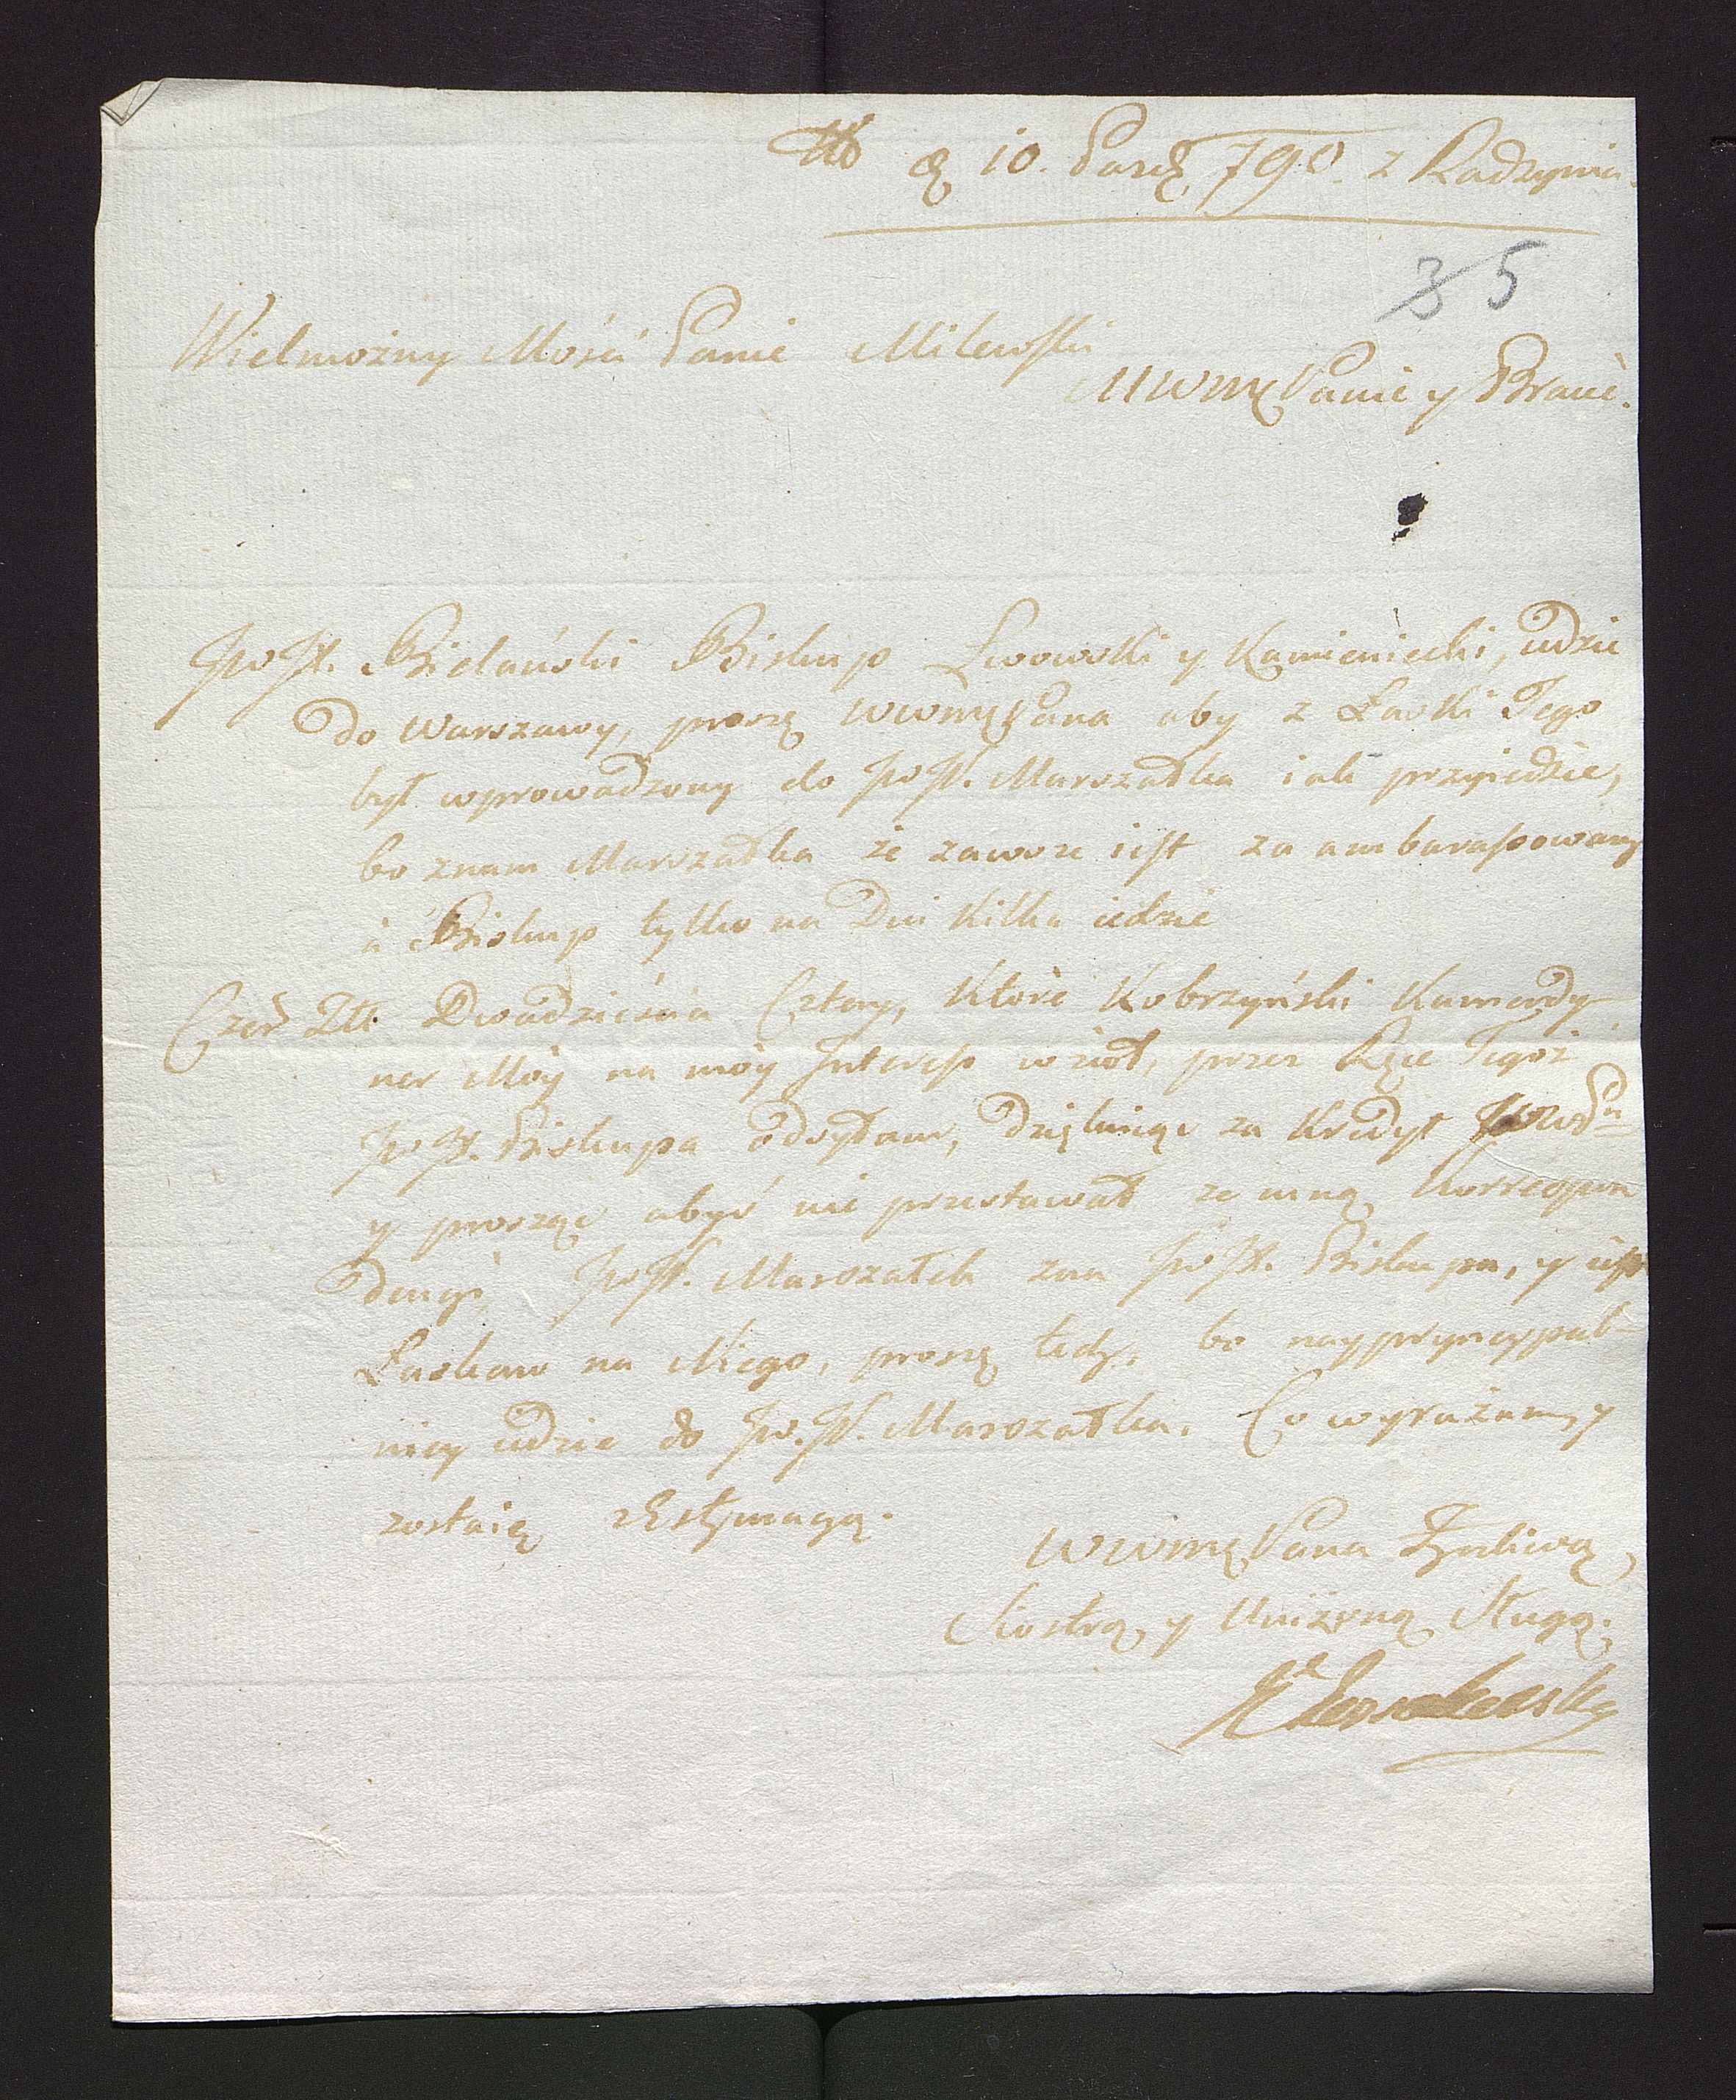 D. 10. Paźd. 790. z Radzynia.
35
Wielmożny Mości Panie Milewski
MWMę Panie y Bracie.
JwJX. Bielański Biskup Lwowski y Kamieniecki, iedzie
do Warszawy, proszę WWMę Pana aby z Łaski Jego
był wprowadzony do JwJP. Marszałka iak przyiedzie,
bo znam Marszałka że zawsze iest zaambarasowany
a Biskup tylko na Dni Kilka iedzie
Czer Złł. Dwadzieścia Cztery, Które Kobrzyński Kamerdy-
ner Móy na móy Interess wzioł, przez Ręce Tegoż
JwJX. Biskupa odsyłam, dziękuiąc za Kredyt
y prosząc abyś nie przestawał ze mną Korrespon
dencyi, JwJP. Marszałek zna JwJX. Biskupa, y iest
Łaskaw na Niego, proszę tedy, bo naypryncypal-
niey iedzie do Jw.JP. Marszałka. Co wyrażam, y
zostaię z Estymacyą.
WWMę Pana Życzliwą
Siostrą y Uniżoną Sługą.